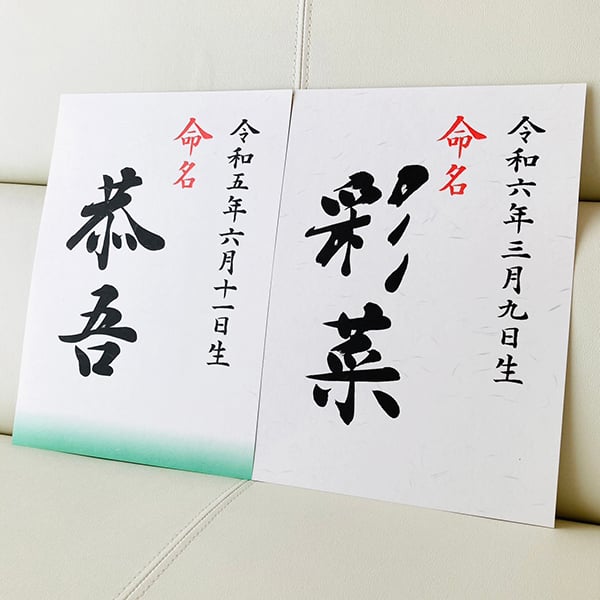 令和五年六月十一日生
命名
恭吾
令和六年三月九日生
命名
彩菜